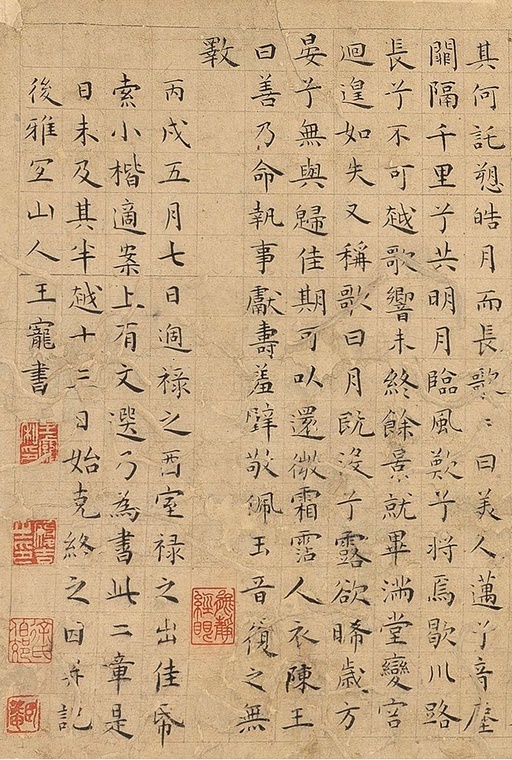 其何託愬皓月而長歌〻曰美人邁兮音塵
闕隔千里兮共明月臨風歎兮將焉歇川路
長兮不可越歌響未終餘景就畢滿堂變容
迴遑如失又稱歌曰月既沒兮露欲晞歲方
晏兮無與歸佳期可以還微霜霑人衣陳王
曰善乃命執事獻壽羞璧敬佩玉音復之無
斁
丙戌五月七日過祿之西室祿之出佳帋
索小楷適案上有文選乃為書此二章是
日未及其半越十三日始克終之因并記
後雅宜山人王寵書
無靜
經眼